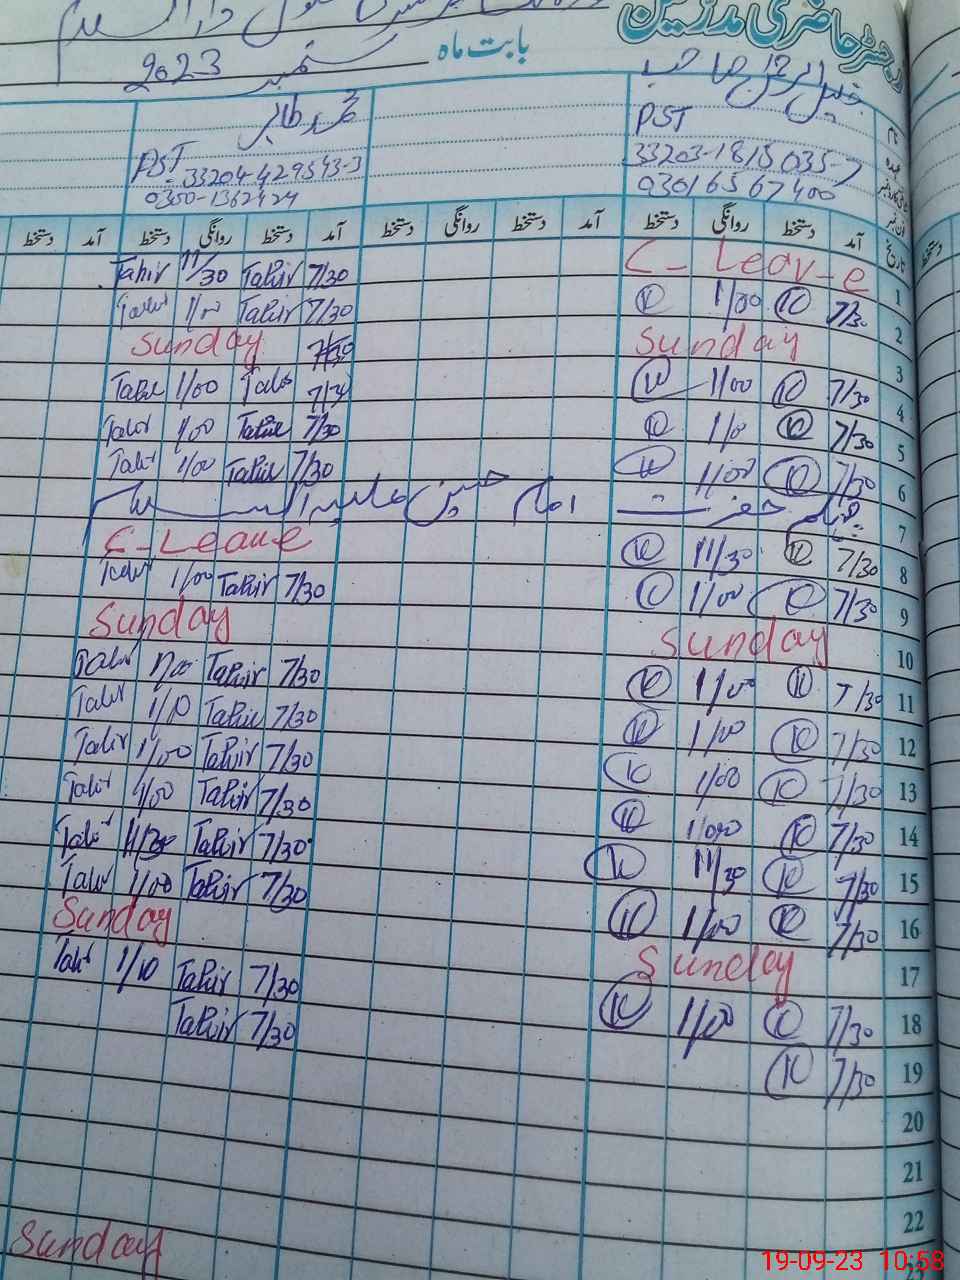 رجسٹر حاضری مدرسین
بابت ماہ ستمبر 2023
PST
33203-1815035-7
03016567400
محمد طاہر
PST
33204-429543-3
0350-1362424
تاریخ آمد دستخط روانگی دستخط آمد دستخط روانگی دستخط آمد دستخط روانگی دستخط آمد دستخط
1 C-Leave 7/30 Tahir 11/30 Tahir
2 7/30 1/00 7/30 Tahir 1/00 Tahir
3 Sunday 7/30 Sunday
4 7/30 1/00 7/30 Tahir 1/00 Tahir
5 7/30 1/0 7/30 Tahir 1/00 Tahir
6 7/30 1/00 7/30 Tahir 1/00 Tahir
7 چہلم حضرت امام حسین علیہ السلام
8 7/30 11/30 C-Leave
9 7/30 1/00 7/30 Tahir 1/00 Tahir
10 Sunday Sunday
11 7/30 1/00 7/30 Tahir 1/00 Tahir
12 7/30 1/00 7/30 Tahir 1/10 Tahir
13 7/30 1/00 7/30 Tahir 1/00 Tahir
14 7/30 1/00 7/30 Tahir 1/00 Tahir
15 7/30 11/30 7/30 Tahir 11/30 Tahir
16 7/30 1/00 7/30 Tahir 1/00 Tahir
17 Sunday Sunday
18 7/30 1/00 7/30 Tahir 1/10 Tahir
19 7/30 7/30 Tahir
20
21
22
Sunday
19-09-23 10:58